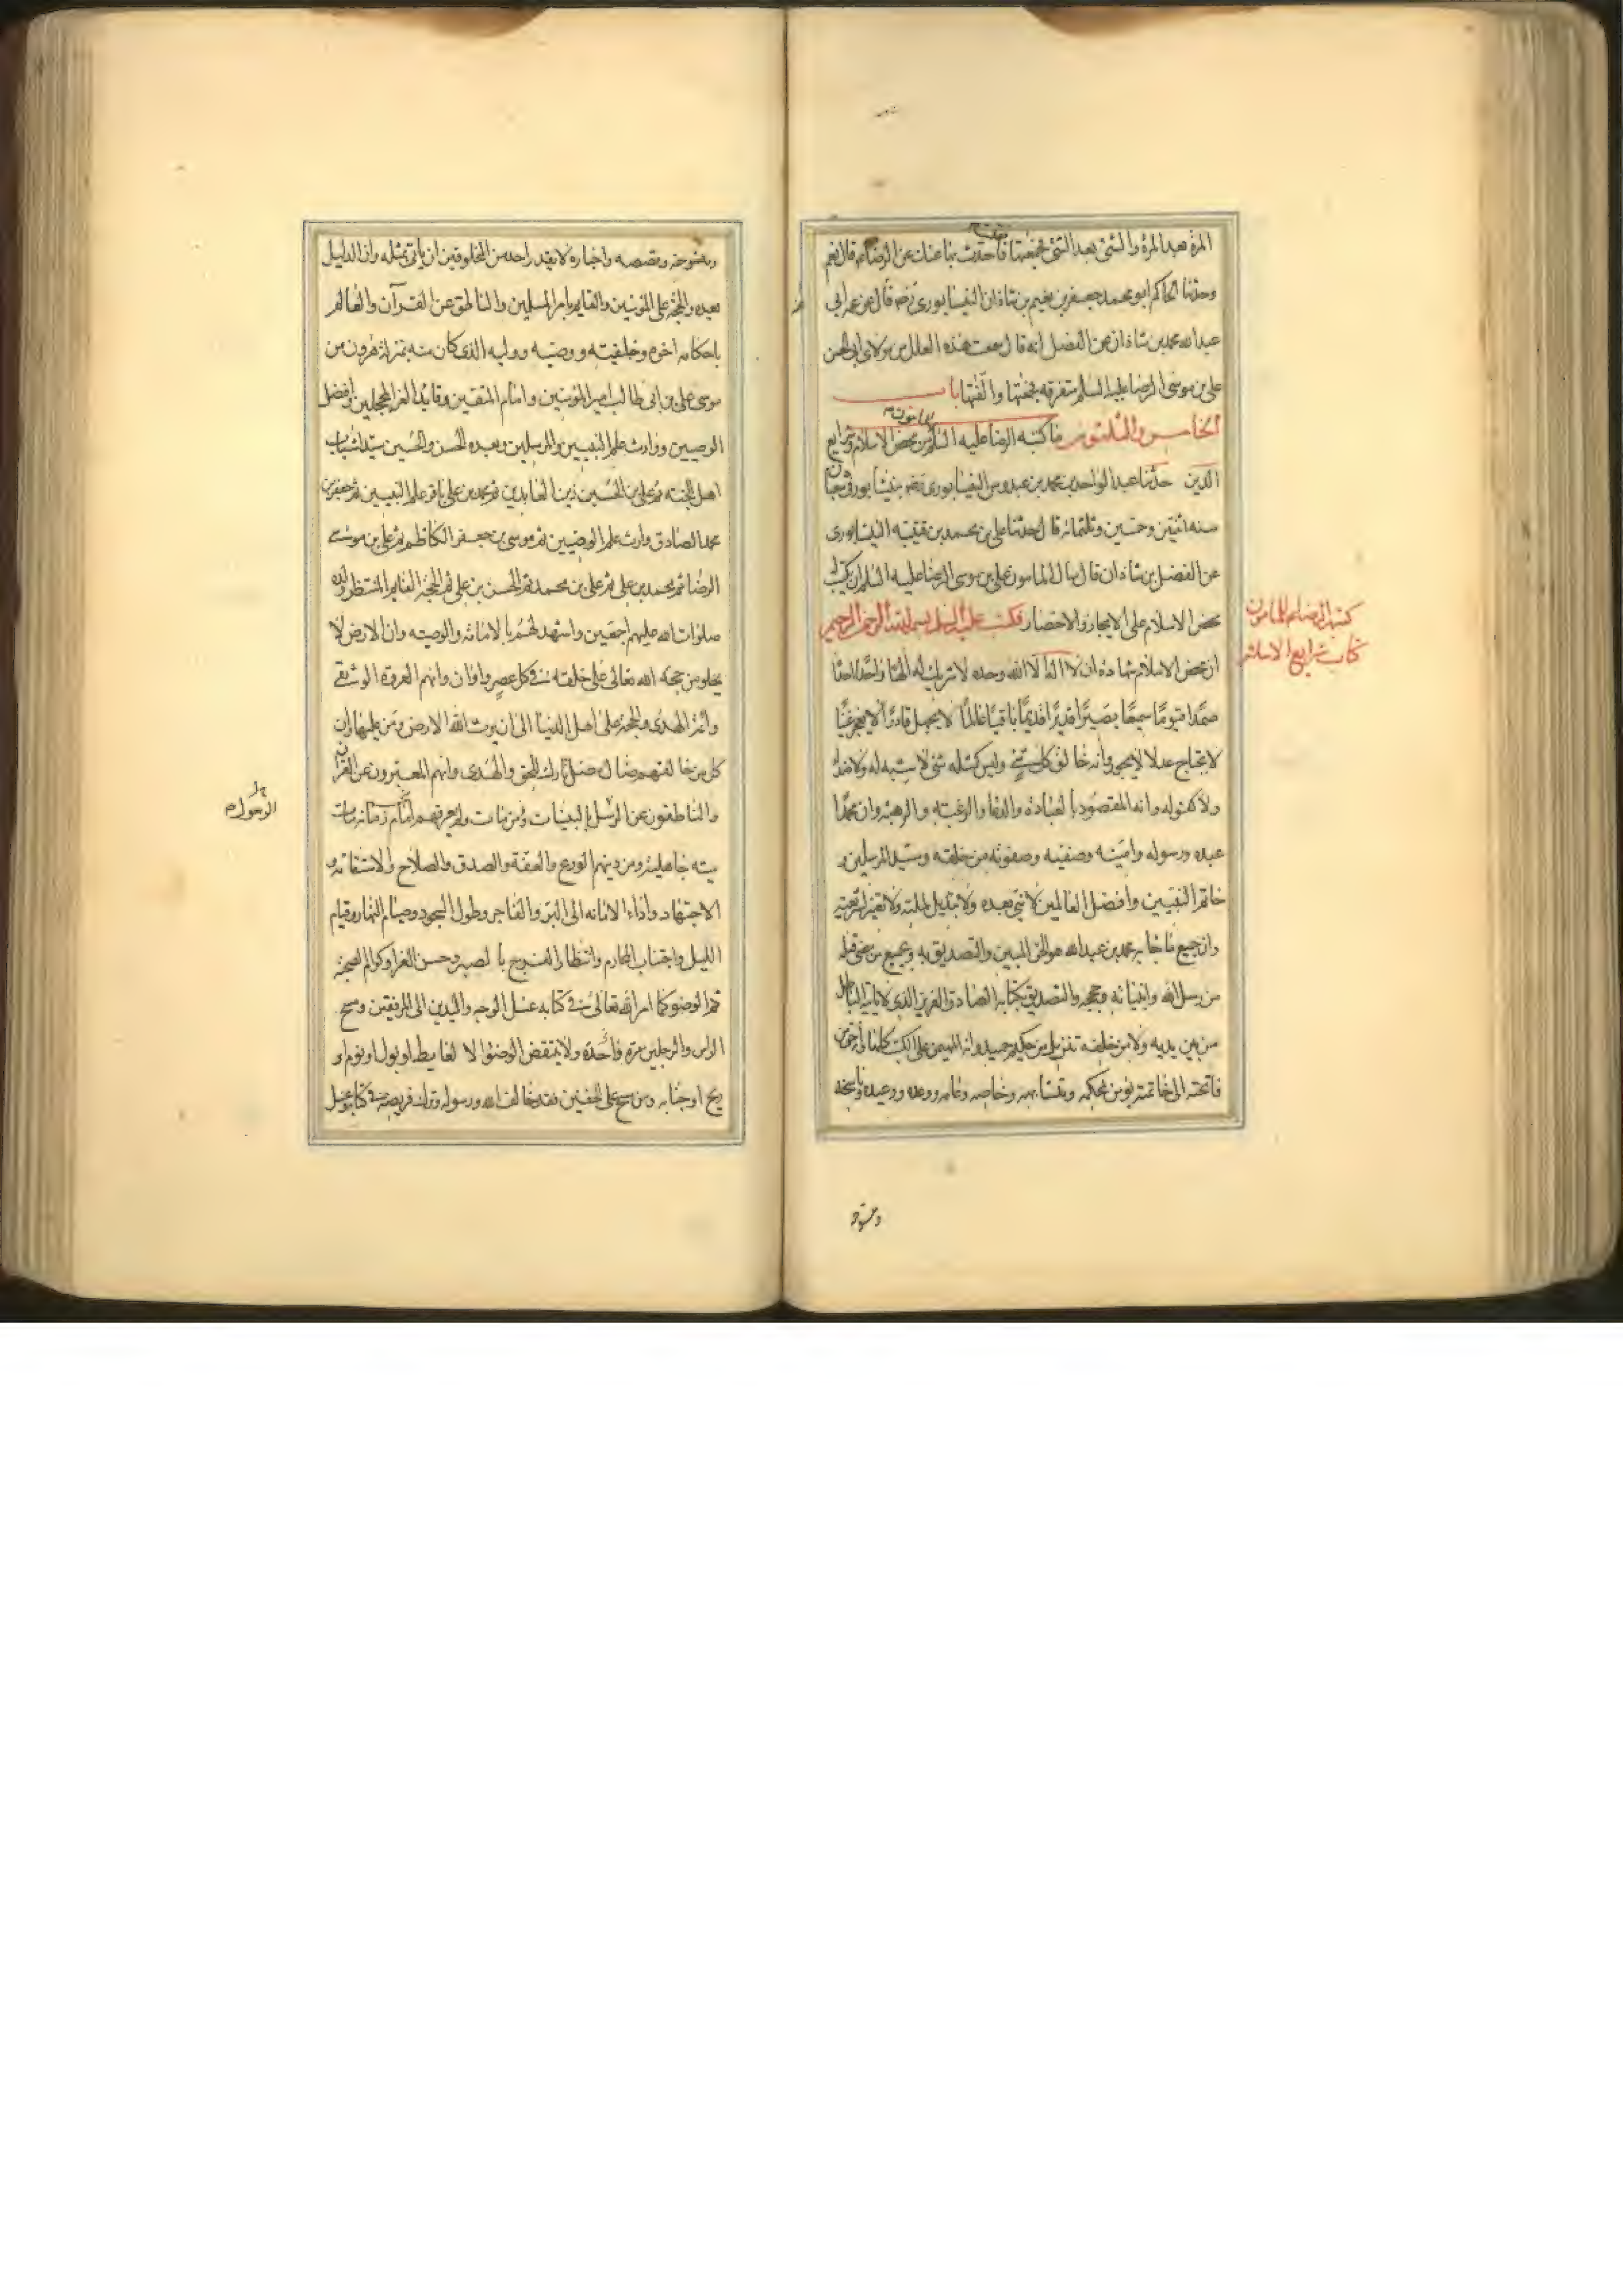 المرة بعد المرة والشئ بعد الشئ فجمعتها فاحدث بها عنك عن الرضاء قال نعم
وحدثنا الحاكم ابو محمد جعفر بن نعيم بن شاذان النيسابوري رضه قال عن عمه ابي
عبدالله محمد بن شاذان عن الفضل انه قال سمعت هذه العلل من مولاي ابي الحسن
علي بن موسى الرضا عليه السلم متفرقه فجمعتها والفتها باب
الخامس والثلثون ما كتبه الرضا عليه السلم للمامون من محض الاسلام وشرايع
الدين حدثنا عبدالواحد بن محمد بن عبدوس النيسابورى رضه بنيسابور في شعبان
سنه اثنتين وخمسين وثلثمائه قال حدثنا على بن محمد بن قتيبه النيسابورى
عن الفضل بن شاذان قال سال المامون على بن موسى الرضا عليه السلم ان يكتب له
محض الاسلام على الايجاز والاختصار فكتب عليه السلم له بسم الله الرحمن الرحيم
ان محض الاسلام شهادة ان لا اله الا الله وحده لا شريك له الها واحدا احدا
صمدا قيوما سميعا بصيرا قديرا قديما باقيا عالما لا يجهل قادرا لا يعجز غنيا
لا يحتاج عدلا لا يجور وانه خالق كل شئ وليس كمثله شئ لا شبه له ولا ضد له
ولا كفو له وانه المقصود بالعباده والدعا والرغبه والرهبه وان محمدا
عبده ورسوله وامينه وصفيه وصفوته من خلقه وسيد المرسلين و
خاتم النبيين وافضل العالمين لا نبي بعده ولا تبديل لملته ولا تغيير لشريعته
وان جميع ما جا به محمد بن عبدالله هو الحق المبين والتصديق به وبجميع من مضى قبله
من رسل الله وانبيائه وحججه والتصديق بكتابه الصادق العزيز الذى لا ياتيه الباطل
من بين يديه ولا من خلفه تنزيل من حكيم حميد وانه المهيمن على الكتب كلها وانه حق من
فاتحته الى خاتمته نؤمن بمحكمه ومتشابهه وخاصه وعامه ووعده ووعيده وناسخه
كتبه الرضاء للمامون
كتاب شرايع الاسلام
ومنسوخه وقصصه واخباره لا يقدر احد من المخلوقين ان ياتى بمثله وان الدليل
بعده والحجة على المؤمنين والقايم بامر المسلمين والناطق عن القرآن والعالم
باحكامه اخوه وخليفته ووصيه ووليه الذى كان منه بمنزلة هرون من
موسى على بن ابى طالب امير المؤمنين وامام المتقين وقايد الغر المحجلين وافضل
الوصيين ووارث علم النبيين والمرسلين وبعده الحسن والحسين سيدا شباب
اهل الجنه ثم على بن الحسين زين العابدين ثم محمد بن على باقر علم النبيين ثم جعفر بن
محمد الصادق وارث علم الوصيين ثم موسى بن جعفر الكاظم ثم على بن موسى
الرضا ثم محمد بن على ثم على بن محمد ثم الحسن بن على ثم الحجة القايم المنتظر ولده
صلوات الله عليهم اجمعين واشهد لهم بالامامة والوصيه وان الارض لا
يخلو من حجه الله تعالى على خلقه في كل عصر واوان وانهم العروة الوثقى
وائمة الهدى والحجة على اهل الدنيا الى ان يرث الله الارض ومن عليها وان
كل من خالفهم ضال مضل تارك للحق والهدى وانهم المعبرون عن القرآن
والناطقون عن الرسل بالبينات ومن مات ولم يعرفهم امام زمانه مات
ميته جاهلية ومن دينهم الورع والعفة والصدق والصلاح والاستقامه و
الاجتهاد واداء الامانه الى البر والفاجر وطول السجود وصيام النهار وقيام
الليل واجتناب المحارم وانتظار الفرج بالصبر وحسن العزا وكرام الصحبة
ثم الوضو كما امر الله تعالى في كتابه غسل الوجه واليدين الى المرفقين ومسح
الراس والرجلين مرة واحدة ولا ينقض الوضوء الا لغايط او بول او نوم او
ريح او جنابه ومن مسح على الخفين فقد خالف الله ورسوله وترك فريضه في كتابه وغسل
الرسول م